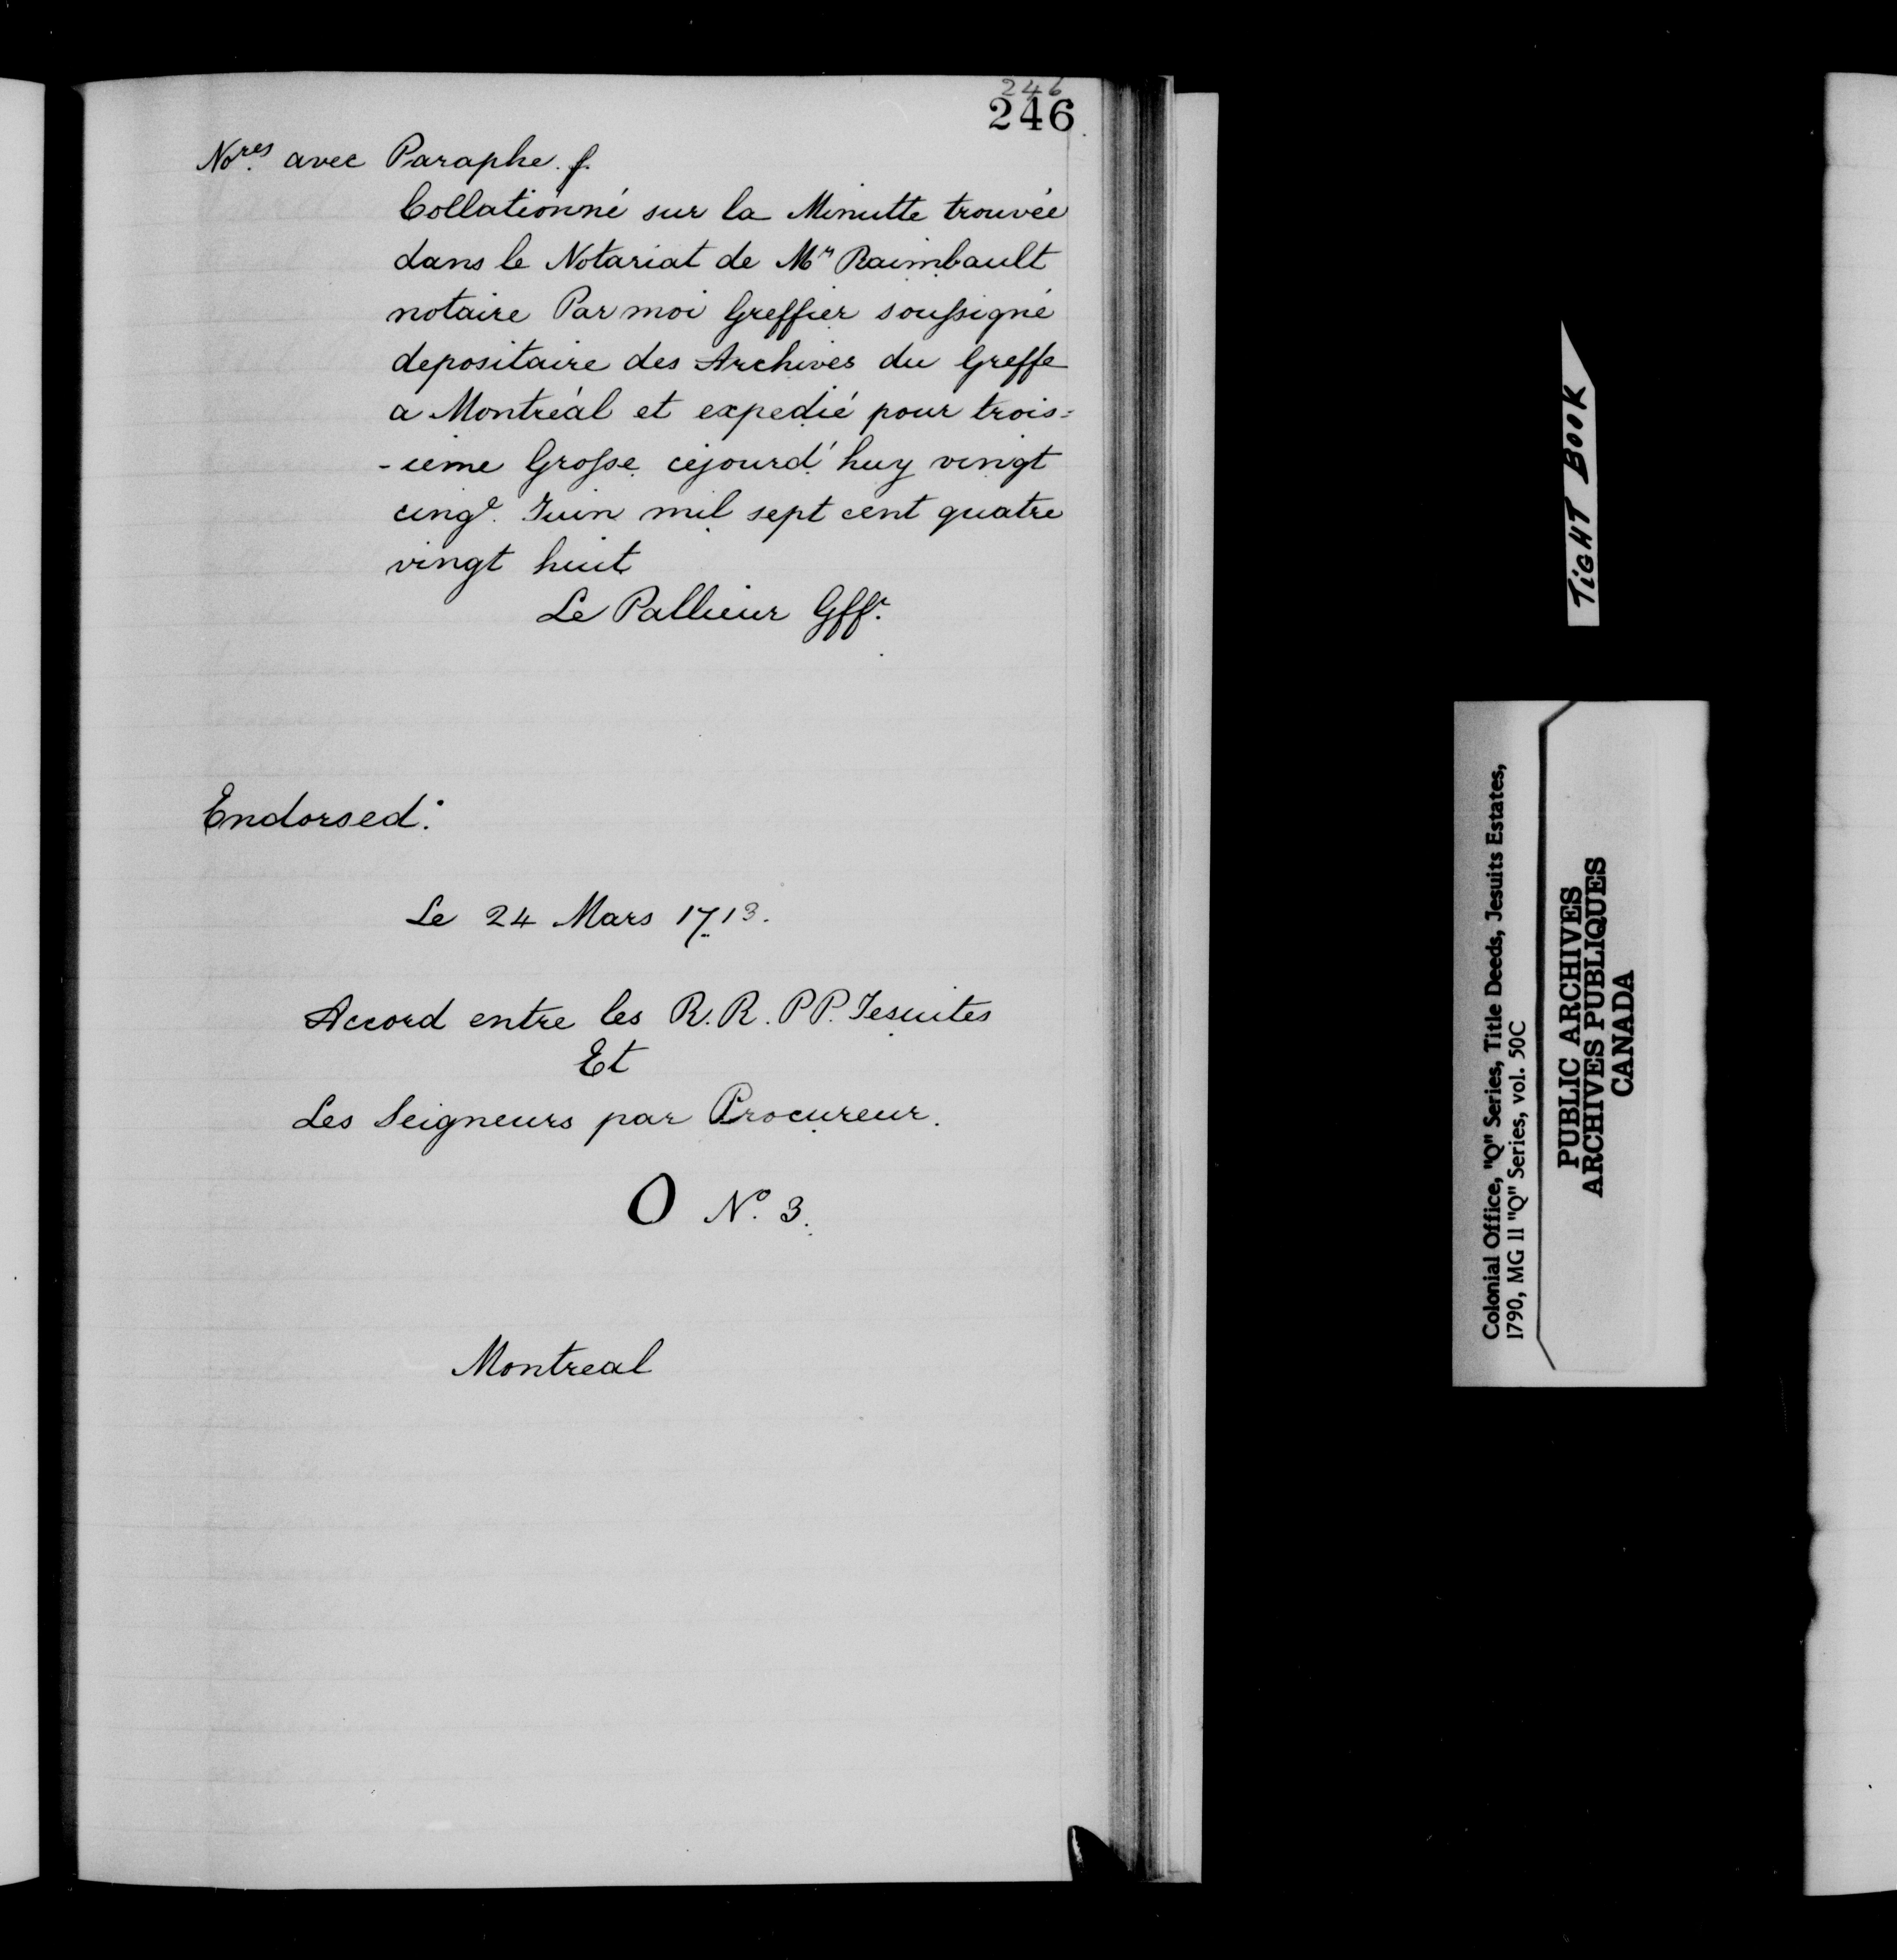 246
246
Nores avec Paraphe. f.
Collationné sur la Minutte trouvée
dans le Notariat de Mr Raimbault
notaire Par moi Greffier soussigné
depositaire des Archives du Greffe
a Montréal et expedié pour trois=
-ieme Grosse cejourd'huy vingt
cinqe. Juin mil sept cent quatre
vingt huit
Le Pallieur Gffr.
Endorsed:
Le 24 Mars 1713.
Accord entre les R.R. PP. Jesuites
Et
Les Seigneurs par Procureur.
O No. 3.
Montreal
TIGHT BOOK
Colonial Office, "Q" Series, Title Deeds, Jesuits Estates,
1790, MG 11 "Q" Series, vol. 50C
PUBLIC ARCHIVES
ARCHIVES PUBLIQUES
CANADA